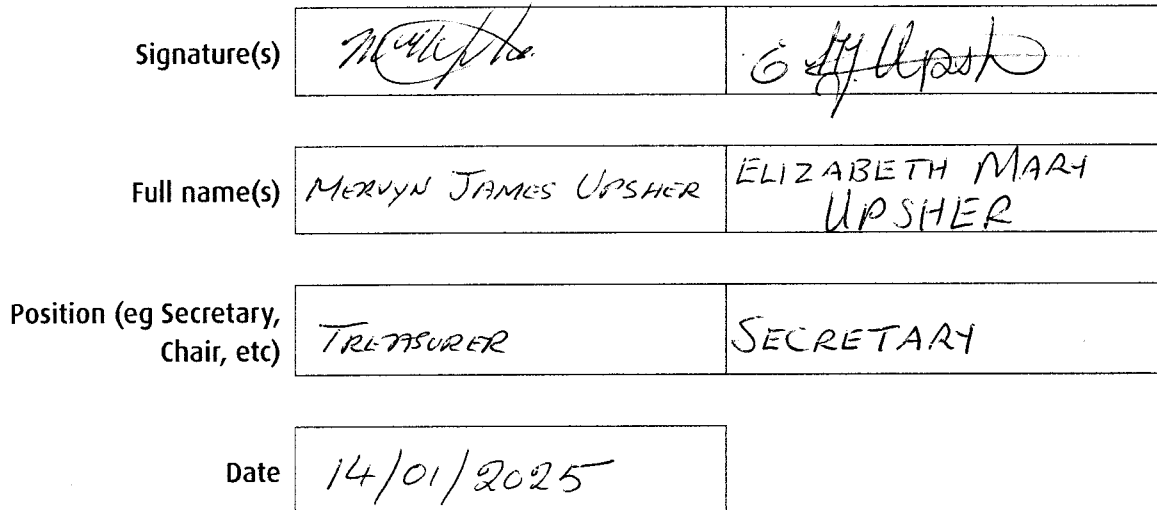 Signature(s)
E M Upsh
Full name(s) MERVYN JAMES UPSHER ELIZABETH MARY
UPSHER
Position (eg Secretary,
Chair, etc) TREASURER SECRETARY
Date 14/01/2025